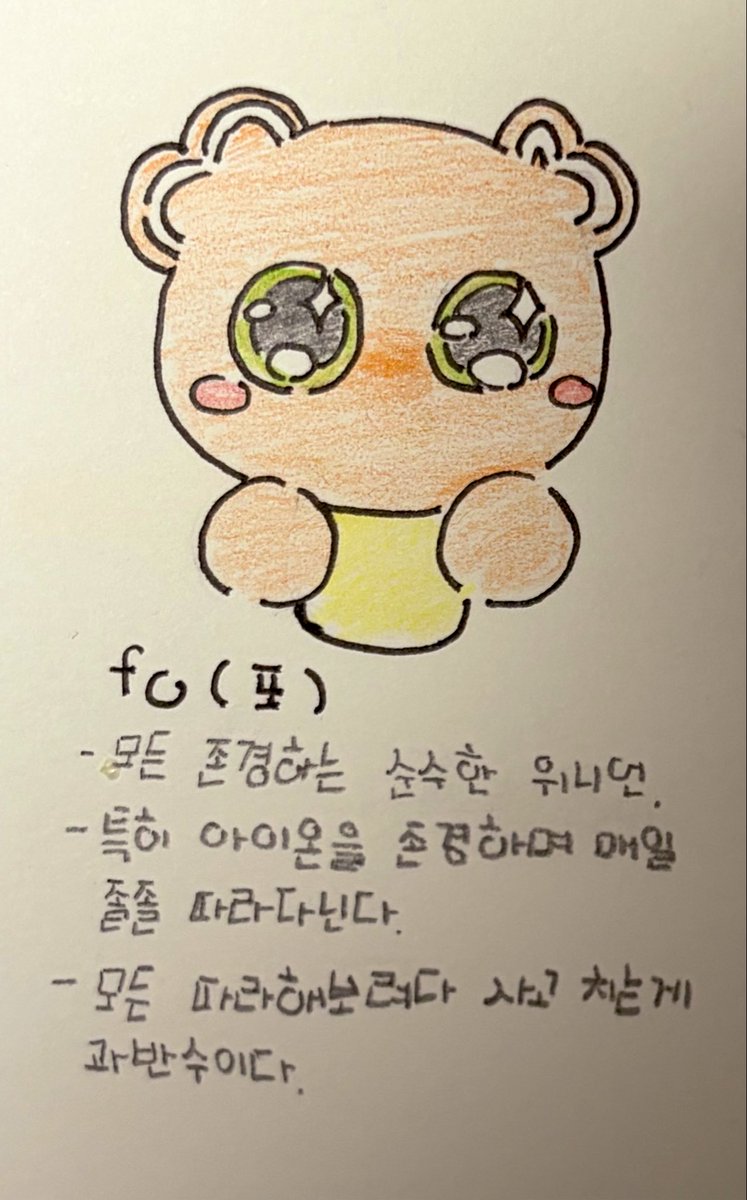 fo (포)
- 모든 존경하는 순수한 위니언.
- 특히 아이온을 존경하며 매일
졸졸 따라다닌다.
- 모든 따라해보려다 사고 치는게
과반수이다.